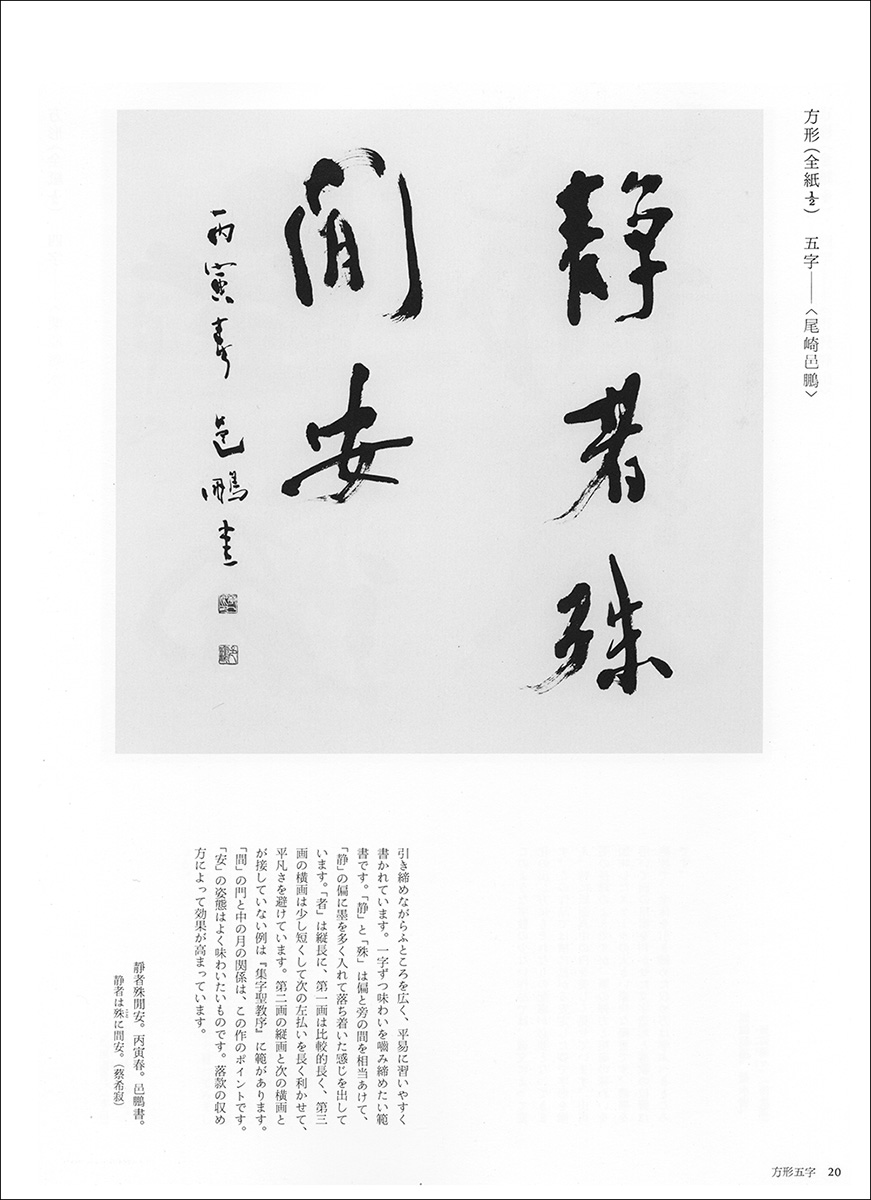 方形（全紙½）　五字――〈尾崎邑鵬〉
靜者殊
閒安
丙寅春　邑鵬書
引き締めながらふところを広く、平易に習いやすく
書かれています。一字ずつ味わいを嚙み締めたい範
書です。「静」と「殊」は偏と旁の間を相当あけて、
「静」の偏に墨を多く入れて落ち着いた感じを出して
います。「者」は縦長に、第一画は比較的長く、第三
画の横画は少し短くして次の左払いを長く利かせて、
平凡さを避けています。第二画の縦画と次の横画と
が接していない例は『集字聖教序』に範があります。
「間」の門と中の月の関係は、この作のポイントです。
「安」の姿態はよく味わいたいものです。落款の収め
方によって効果が高まっています。
靜者殊閒安。丙寅春。邑鵬書。
静者は殊に間安。（蔡希寂）
方形五字　20